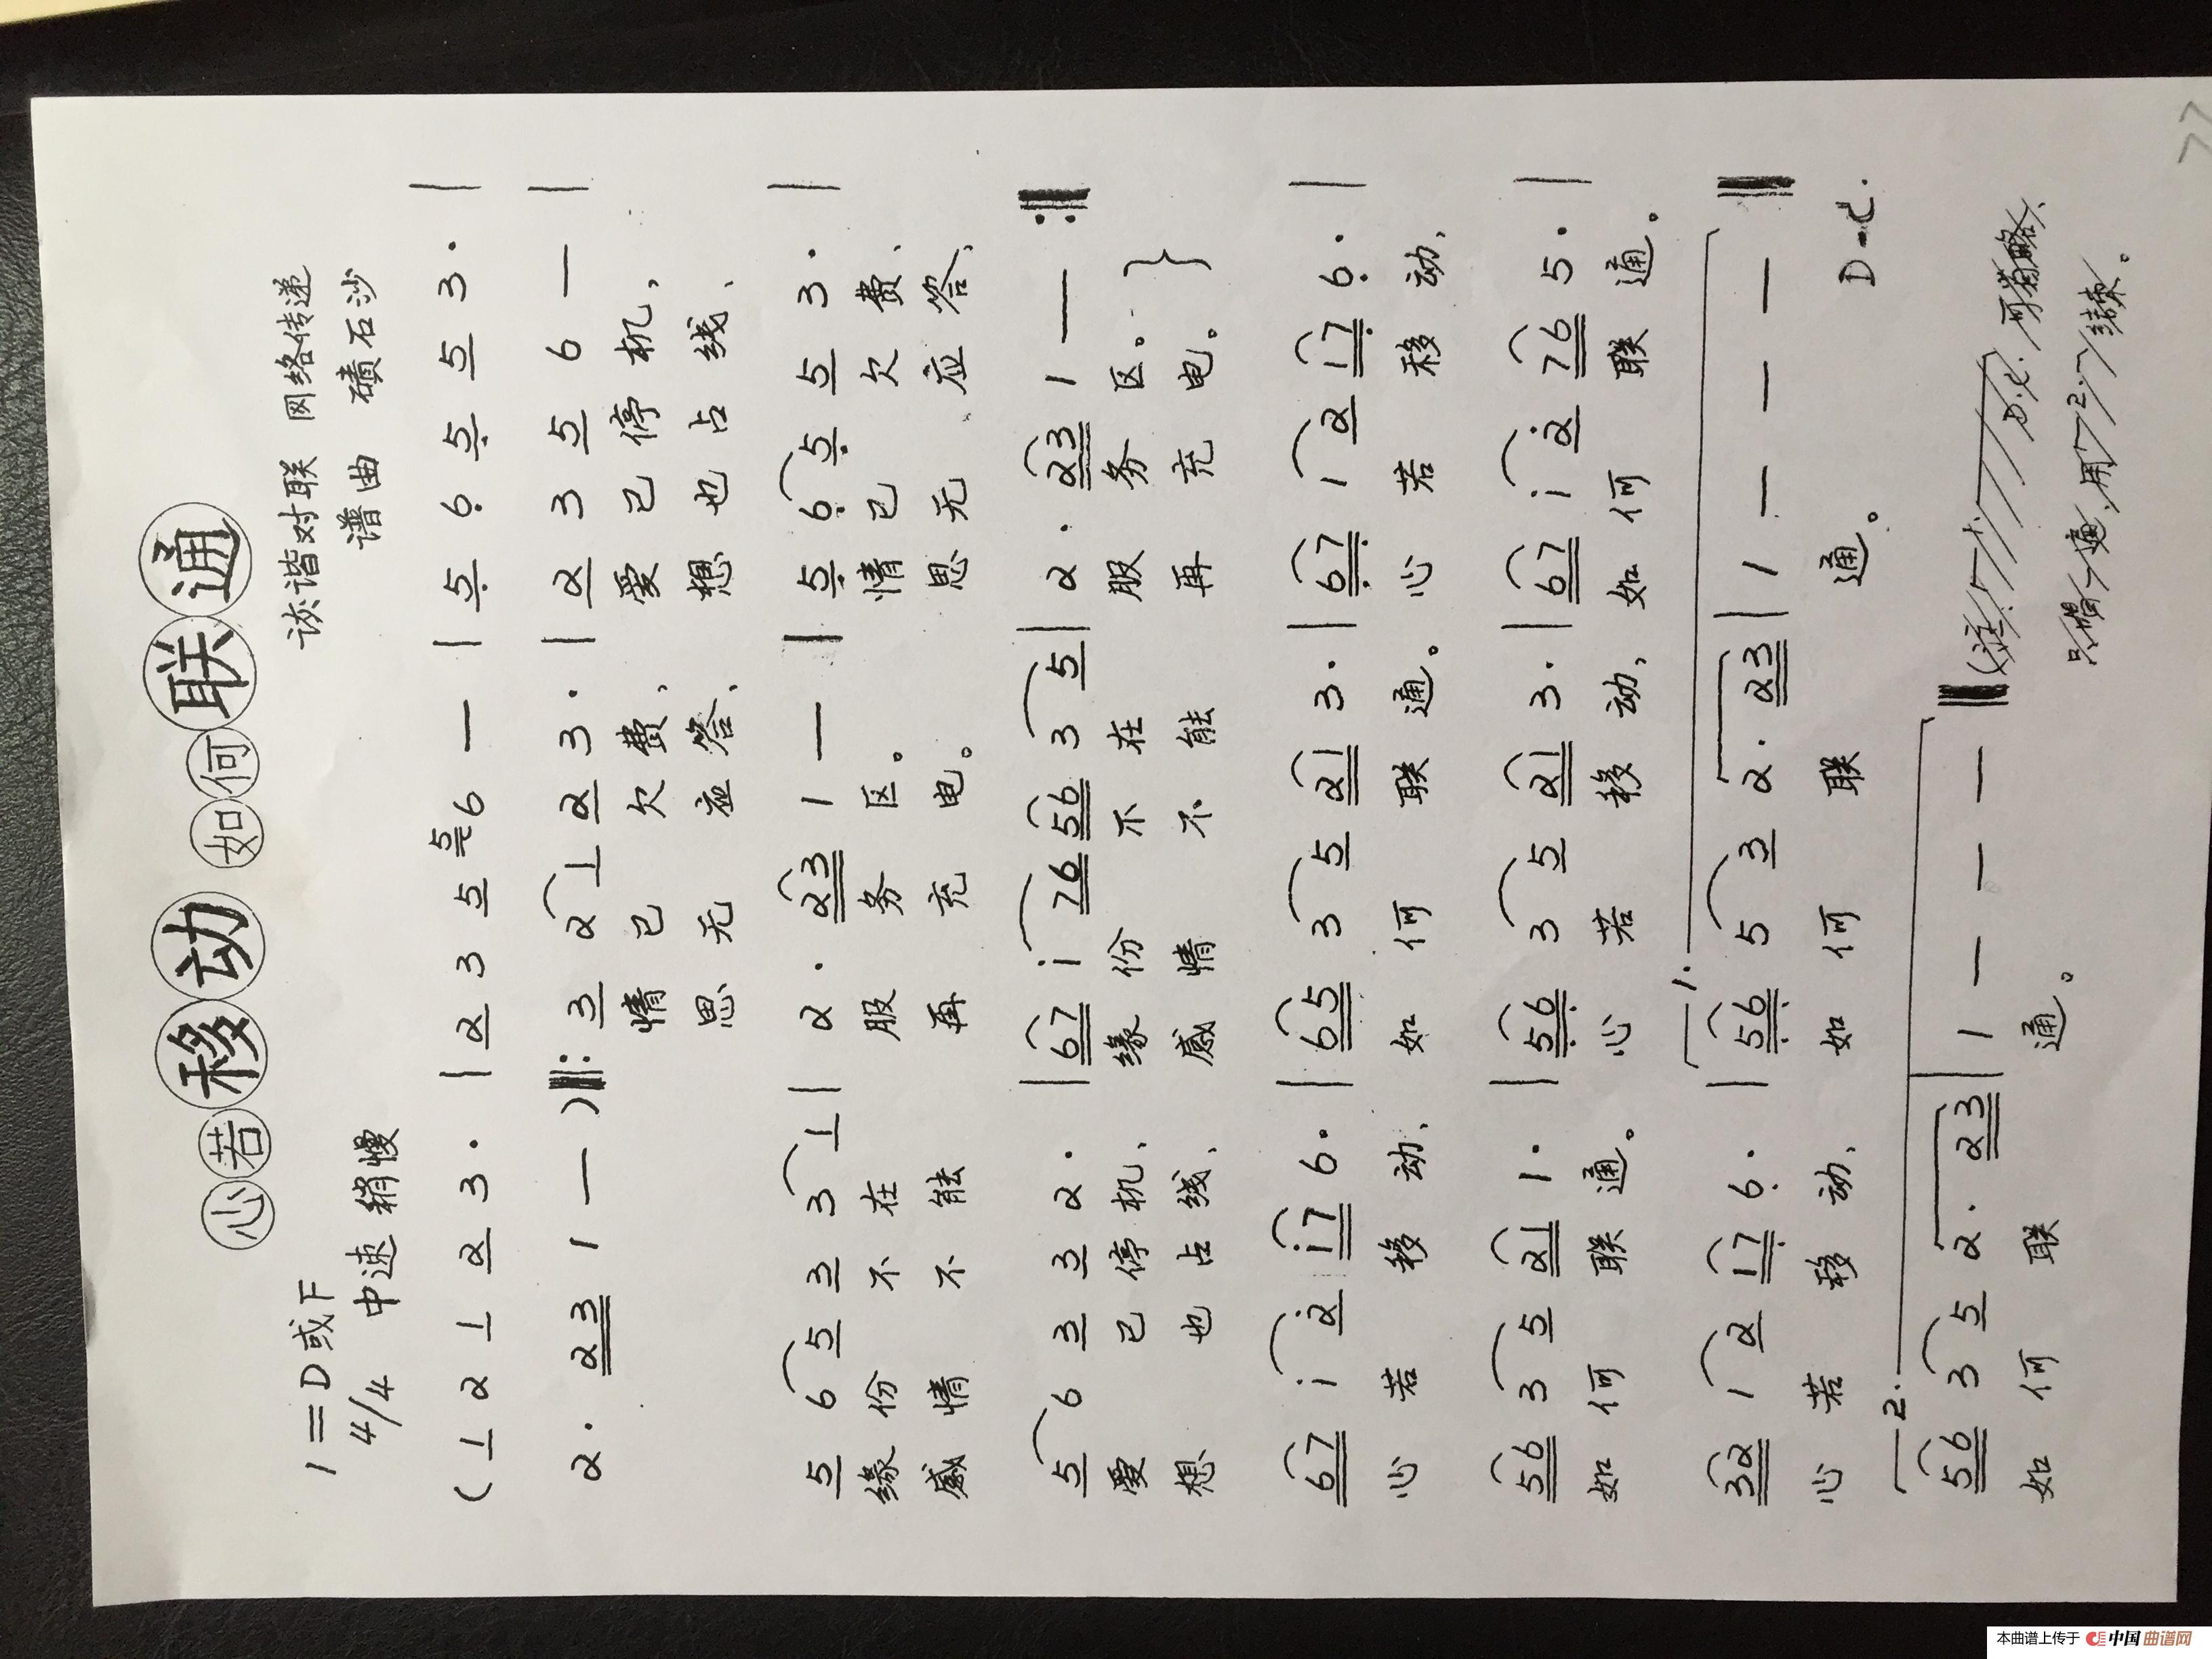 心若移动如何联通
诙谐对联 网络传递
谱曲 碛石沙
1=D或F
4/4 中速 稍慢
(1 2 1 2 3· | 2 3 5 5 6 — | 5 6 5 5 3· |
2· 23 1 — )‖: 3 2 1 2 3· | 2 3 5 6 — |
情已欠费、爱已停机，
思无应答、想也占线、
5 6 5 3 3 1 | 2· 23 1 — | 5 6 5 5 3· |
缘份不在服务区。情已欠费、
感情不能再充电。思无应答、
5 6 3 3 2· | 67 i 76 56 3 5 | 2· 23 1 — :‖
爱已停机、缘份不在服务区。}
想也占线、感情不能再充电。
67 i 2 i7 6· | 65 3 5 21 3· | 67 1 2 17 6· |
心若移动、如何联通。心若移动、
56 3 5 21 1· | 56 3 5 21 3· | 67 i 2 76 5· |
如何联通。心若移动，如何联通。
1.
32 1 2 17 6· | 56 5 3 2· 23 | 1 — — — ‖
心若移动、如何联通。
D.C.
2.
56 3 5 2· 23 | 1 — — — ‖
如何联通。
本曲谱上传于 中国曲谱网